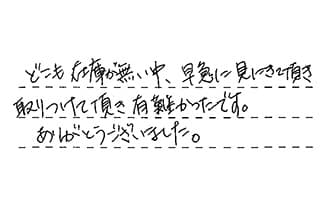 どこも在庫が無い中、早急に見にきて頂き
取りつけて頂き有難かったです。
ありがとうございました。